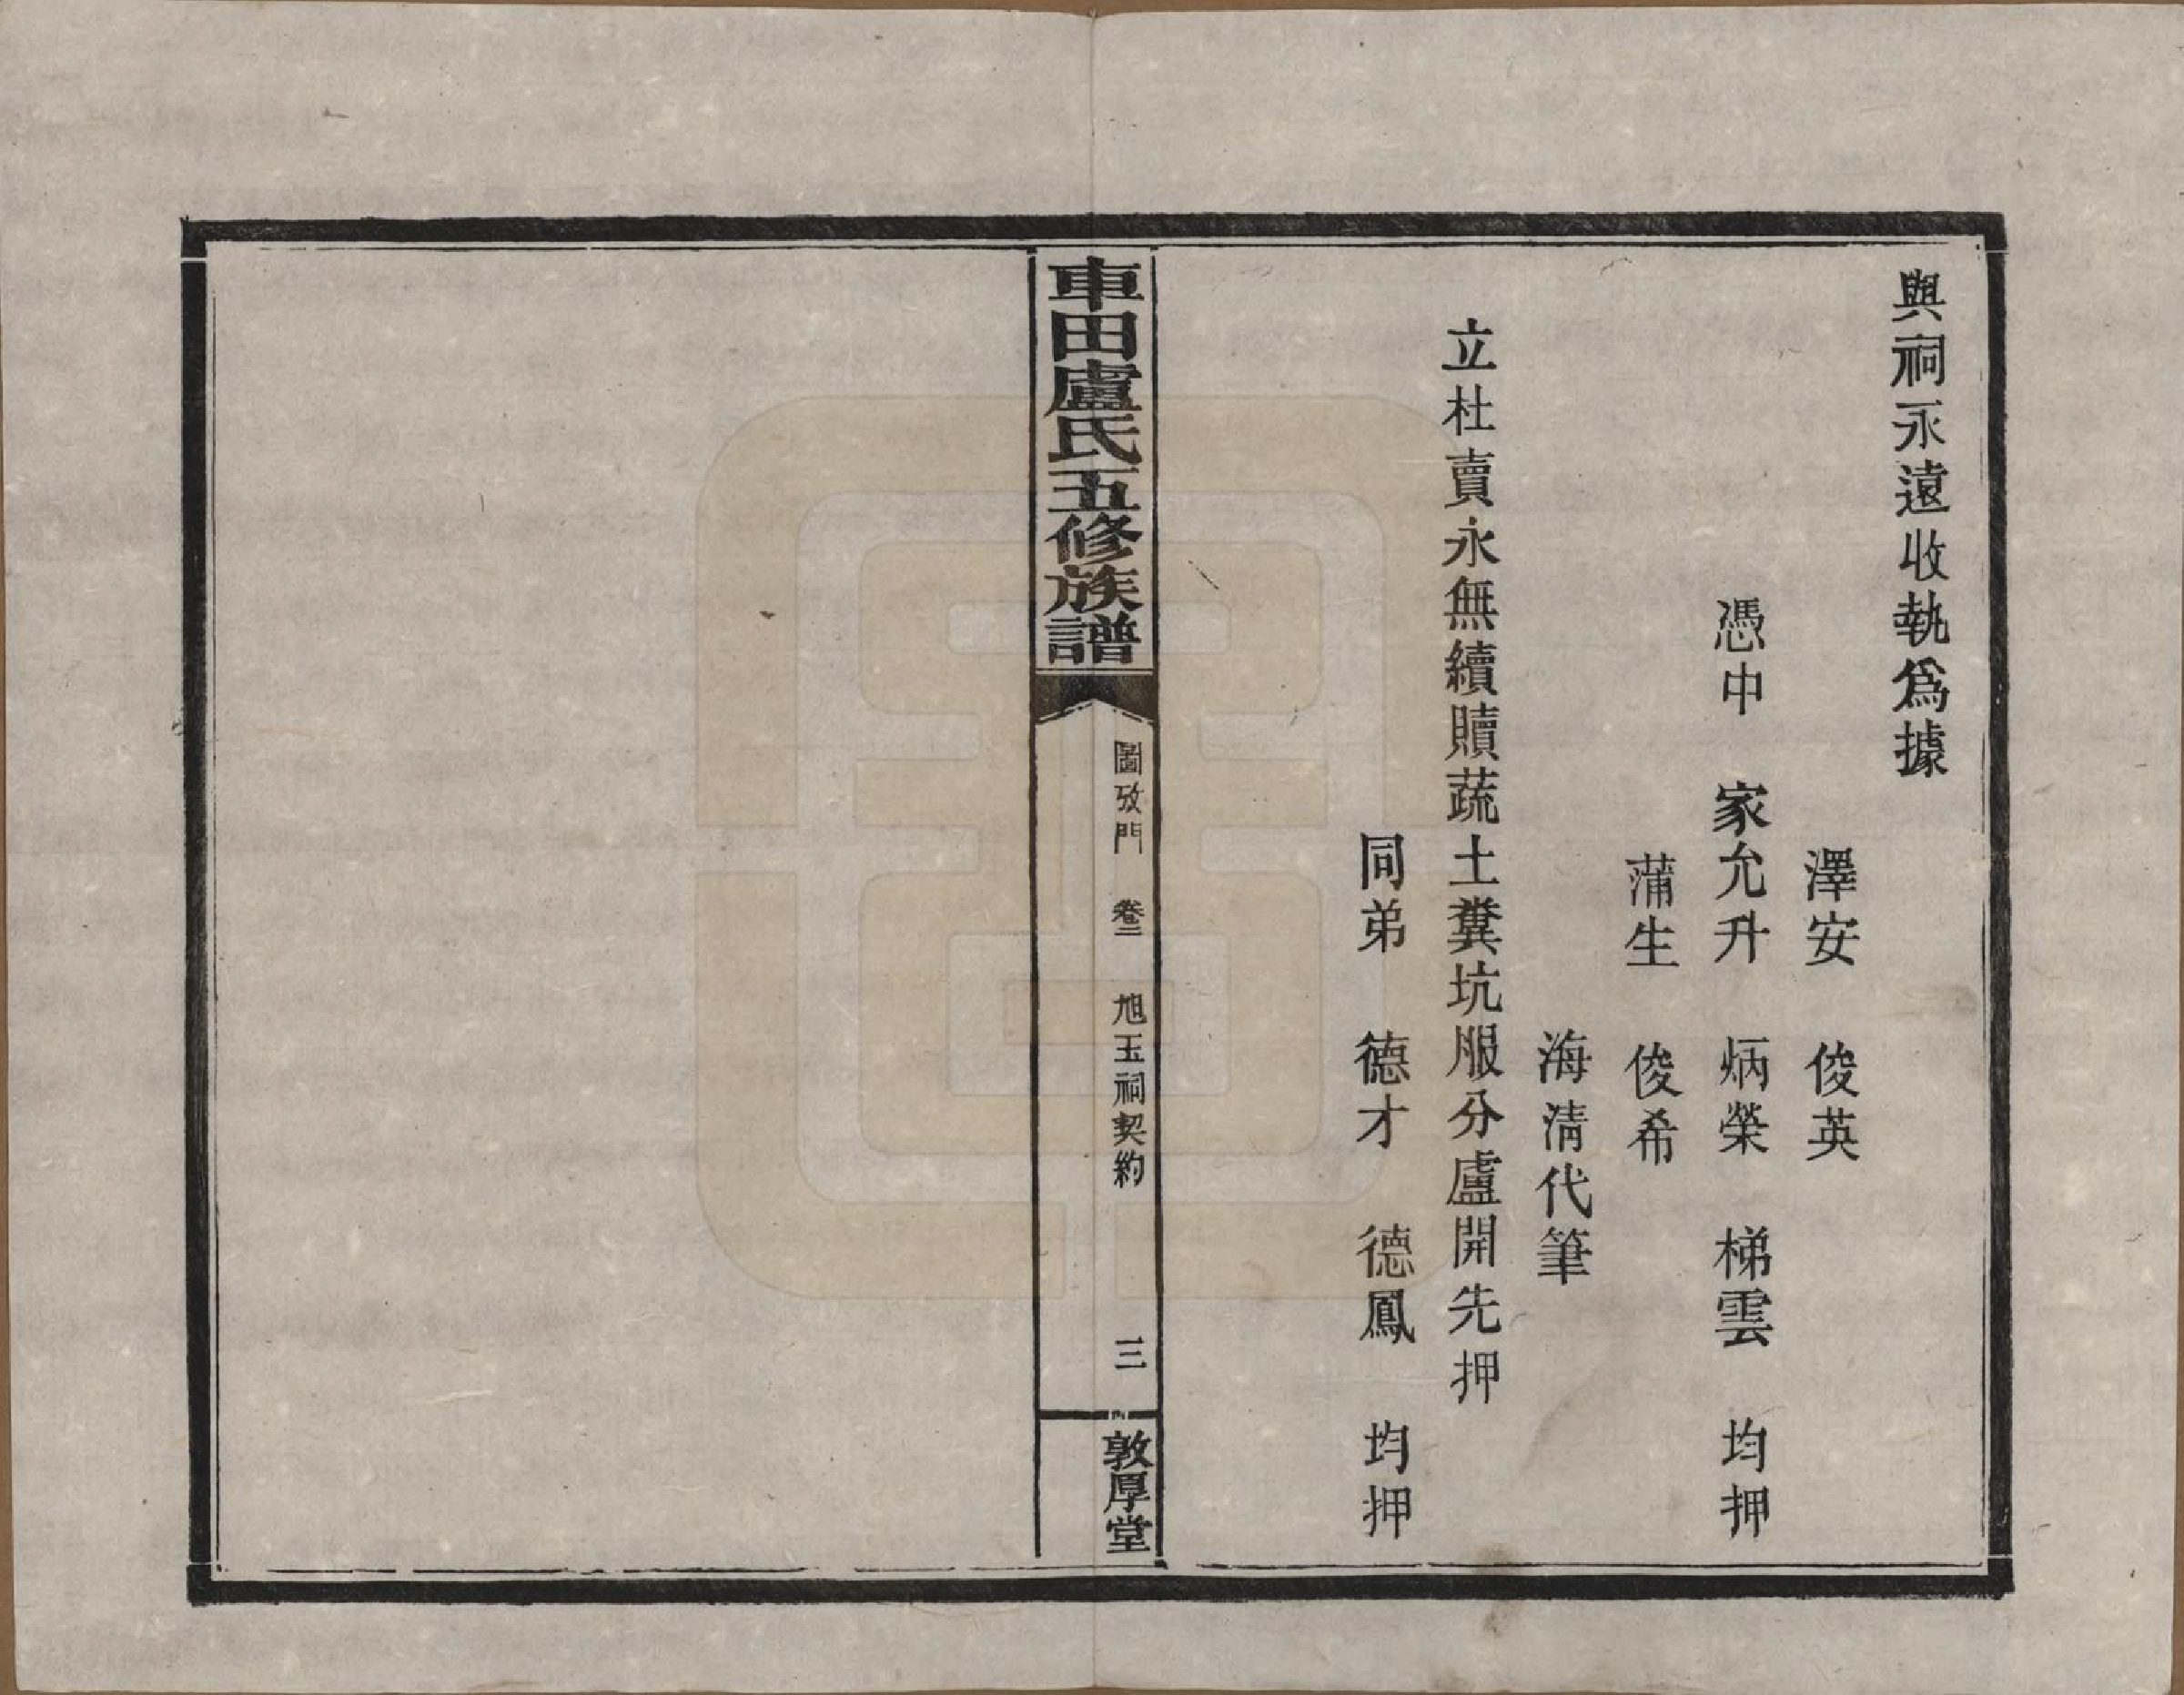 與祠永遠收執爲據
澤安　俊英
憑中　家允升　炳榮　梯雲　均押
蒲生　俊希
海淸代筆
立杜賣永無續贖蔬土糞坑服分盧開先押
同弟　德才　德鳳　均押
車田盧氏五修族譜
圖攷門　卷三　旭玉祠契約　三
敦厚堂